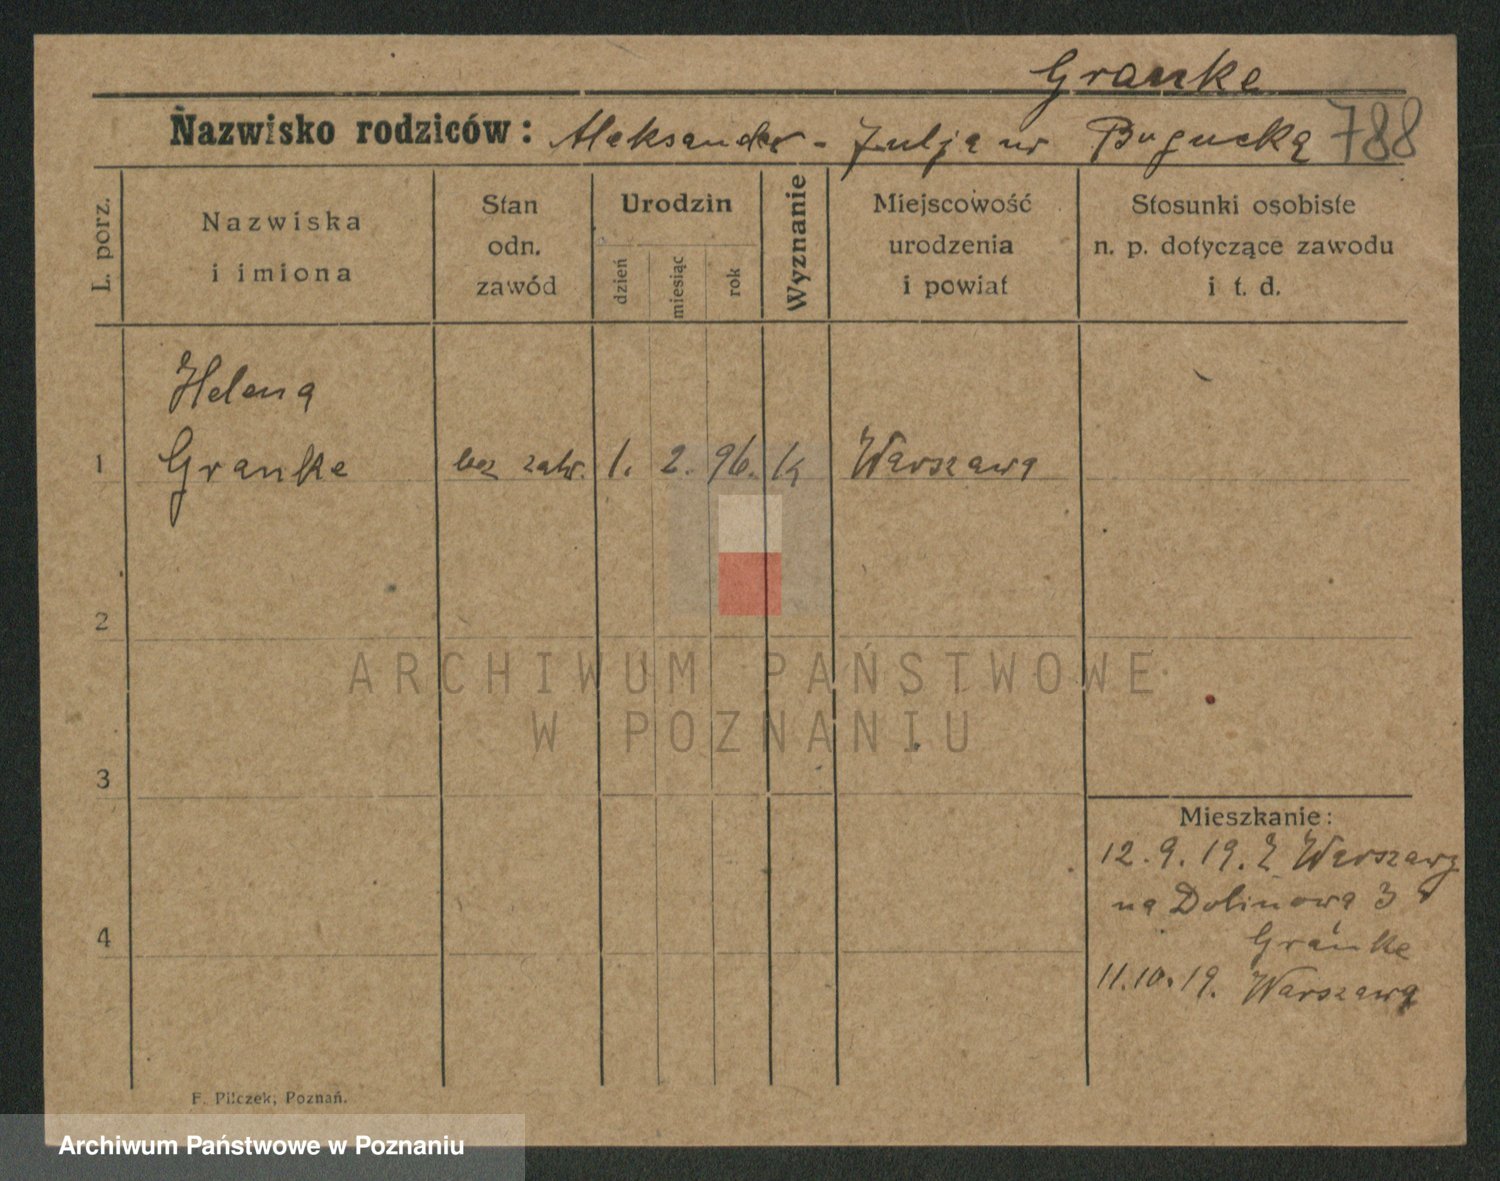 Granke
Nazwisko rodziców: Aleksander - Julja ur Bugucka 788
L. porz.
Nazwiska
i imiona
Stan
odn.
zawód
Urodzin
dzień
miesiąc
rok
Wyznanie
Miejscowość
urodzenia
i powiat
Stosunki osobiste
n. p. dotyczące zawodu
i t. d.
Helena
1 Granke bez zaw. 1. 2. 96. k Warszawa
2
ARCHIWUM PAŃSTWOWE
W POZNANIU
3
Mieszkanie:
12.9.19. Z Warszawy
na Dolinowa 3
Granke
4
11.10.19. Warszawa
F. Pilczek, Poznań.
Archiwum Państwowe w Poznaniu